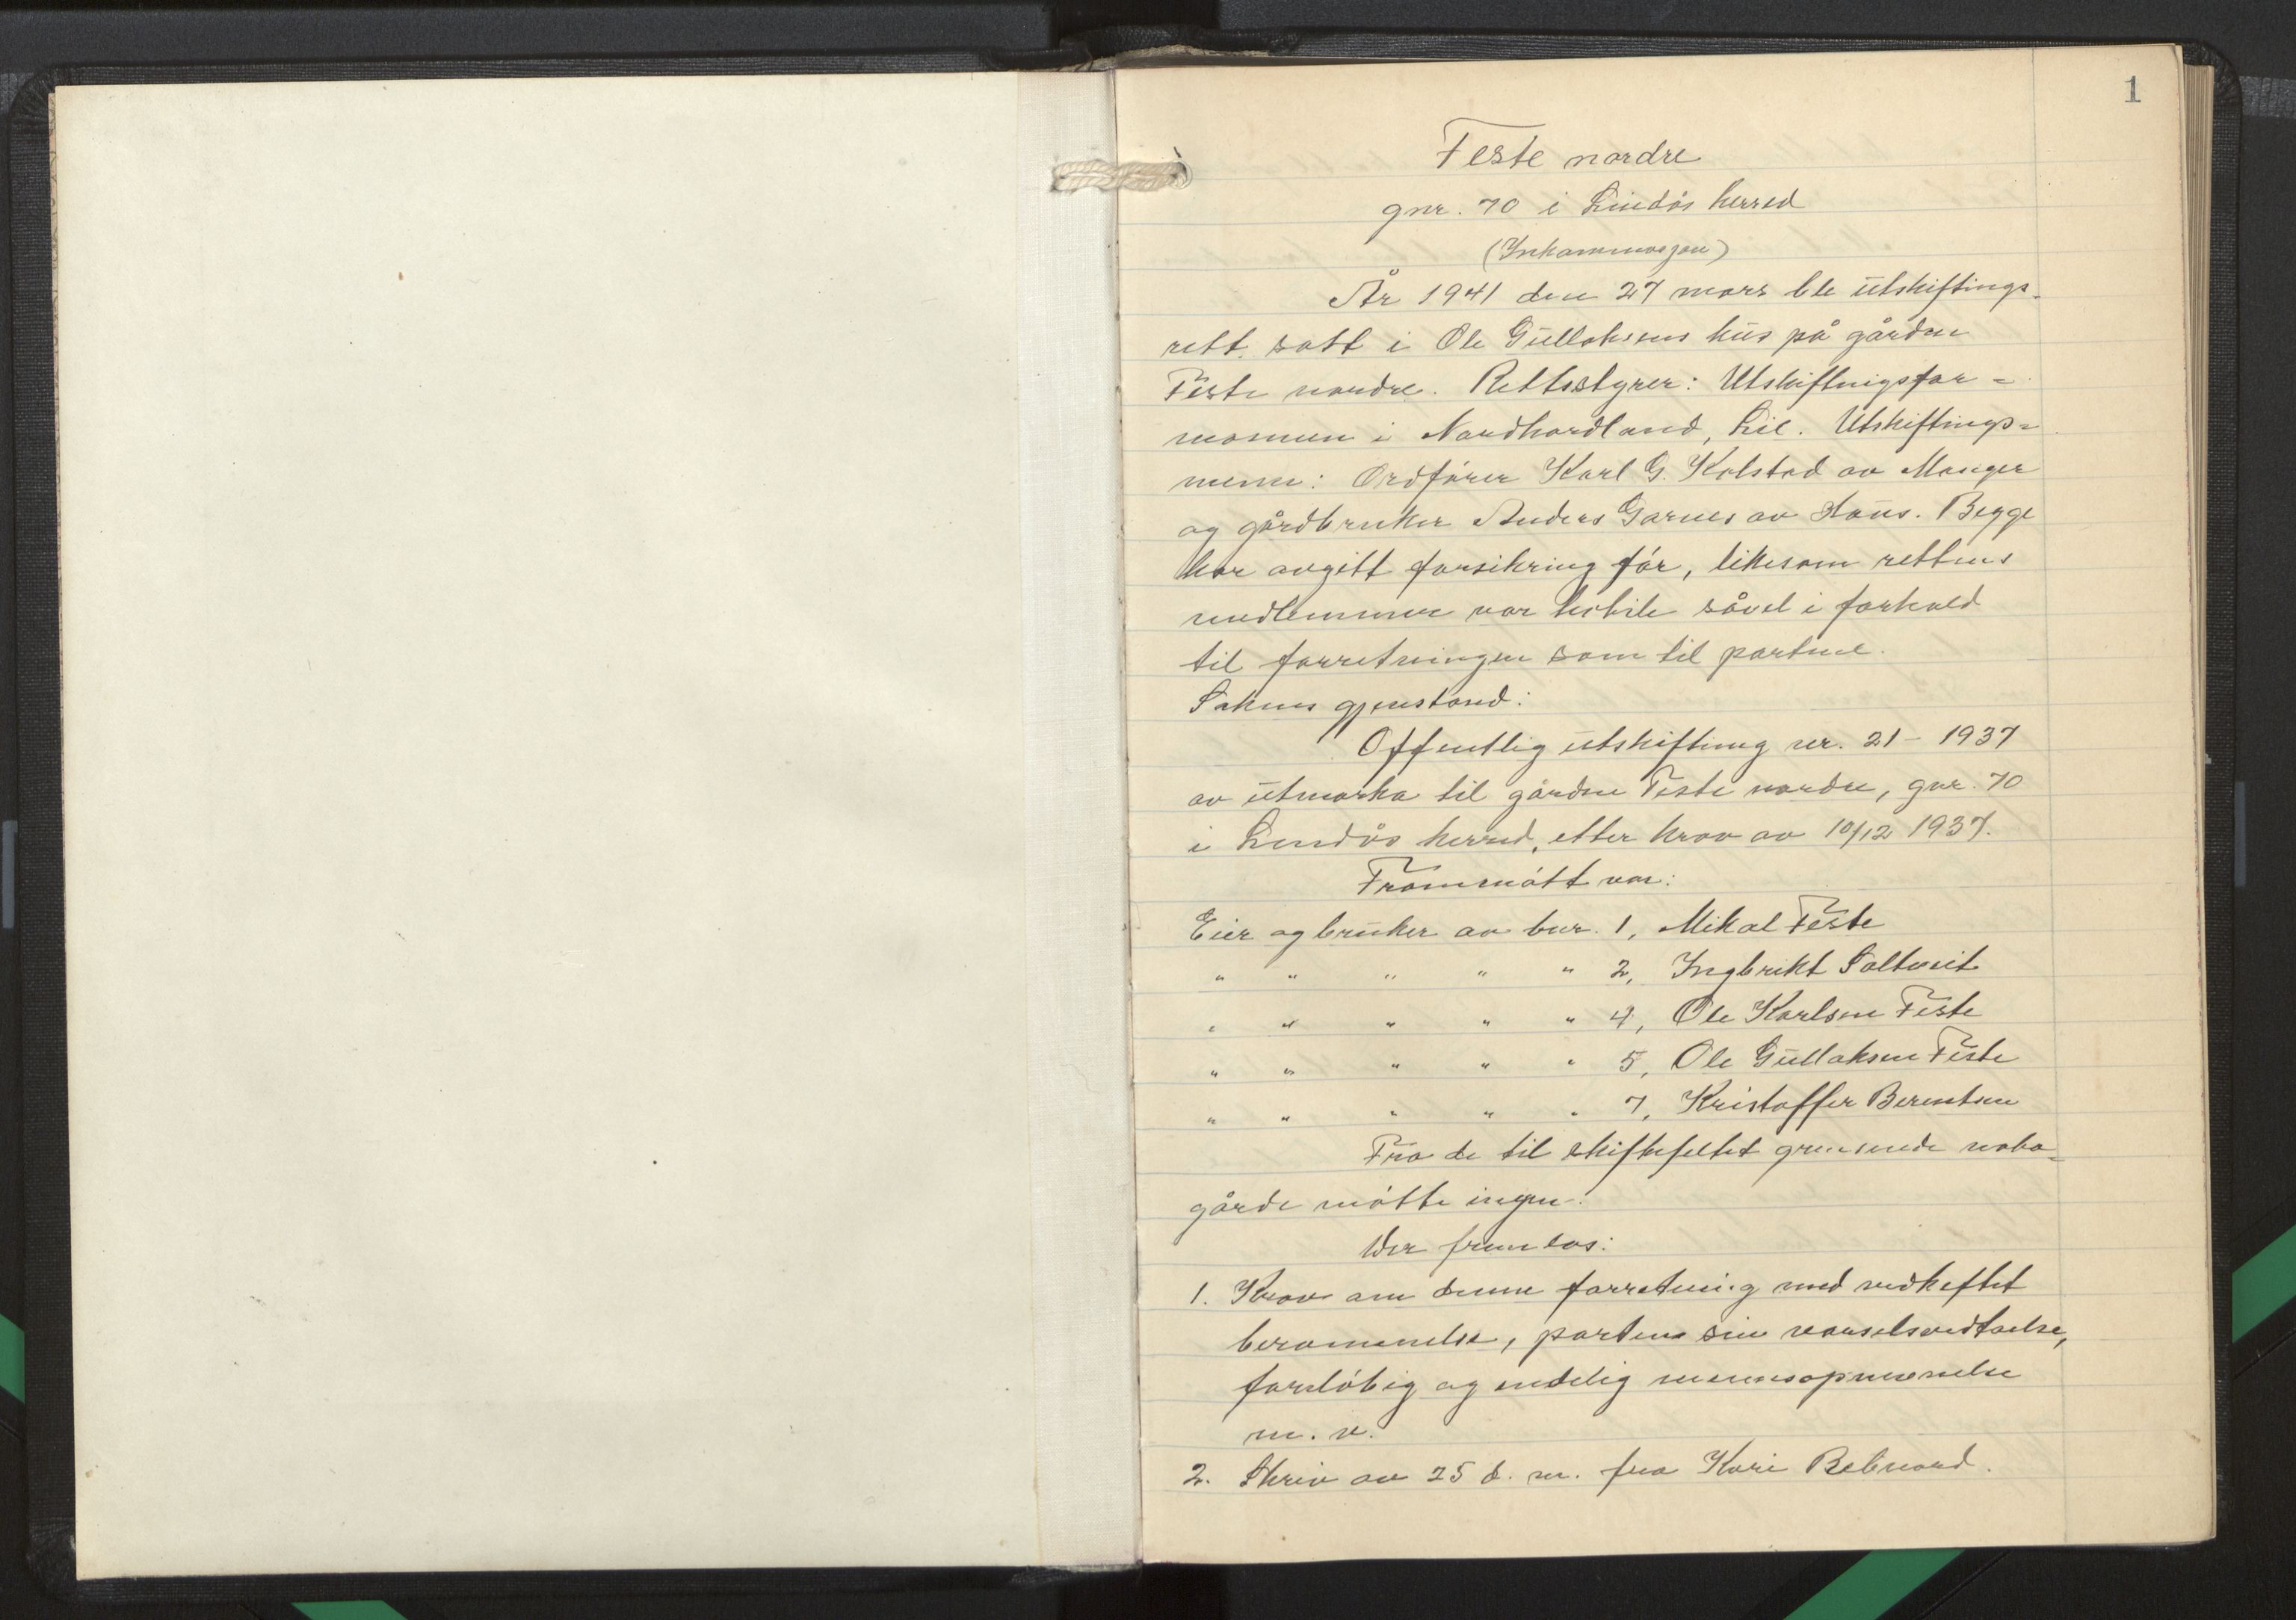 1
Feste nordre
gnr. 70 i Lindås herred
(Inkaminasjon)
År 1941 den 27 mars ble utskiftings-
rett satt i Ole Gullaksens hus på gården
Feste nordre. Rettsstyrer: Utskiftningsfor=
mannen i Nordhordland, Lie. Utskiftings=
menn: Ordfører Karl G. Kolstad av Manger
og gårdbruker Anders Garnes av Haus. Begge
har avgitt forsikring før, likesom rettens
medlemmer var habile såvel i forhold
til forretningen som til partene.
Sakens gjenstand:
Offentlig utskifting nr. 21 - 1937
av utmarka til gården Feste nordre, gnr. 70
i Lindås herred, etter krav av 10/12 1937.
Frammøtt var:
Eier og bruker av bnr. 1, Mikal Feste
" " " " " 2, Ingbrikt Saltveit
" " " " " 4, Ole Karlsen Feste
" " " " " 5, Ole Gullaksen Feste
" " " " " 7, Kristoffer Berentsen
Fra de til skiftefeltet grensende nabo=
gårde møtte ingen.
Der framlas:
1. Krav om denne forretning med vedheftet
berammelse, partenes varselsvedtaelse,
foreløbig og endelig mennsopnevnelse
m. v.
2. Skriv av 25 d. m. fra Kari Bebnord.